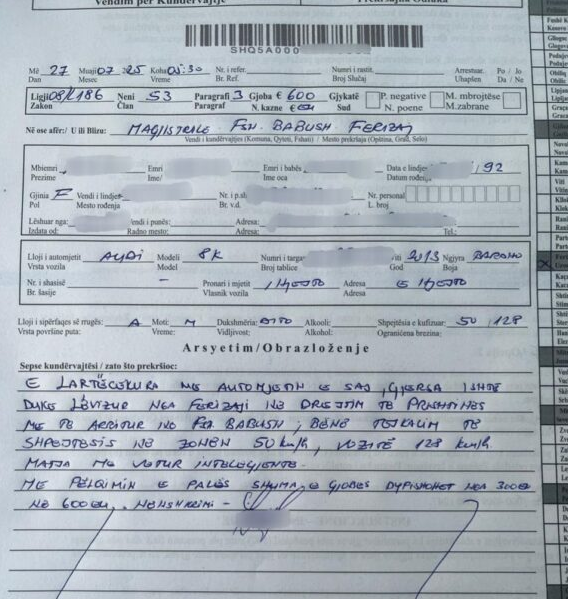 Vendim për Kundërvajtje Prekršajna Odluka
SHQ5A000
Më 27 Muaji 07 2025 Koha 01:30 Nr. i refer. Numri i rastit. Arrestuar: Po / Jo
Dan Mesec Vreme Br. Ref. Broj Slučaj Uhapšen Da / Ne
Ligji 08/L186 Neni 53 Paragrafi 3 Gjoba € 600 Gjykatë P. negative M. mbrojtëse
Zakon Član Paragraf N. kazne € Sud N. poene M.zabrane
Në ose afër:/ U ili Blizu: MAGJISTRALE FSH. BABUSH FERIZAJ
Vendi i kundërvajtjes (Komuna, Qyteti, Fshati) / Mesto prekršaja (Opština, Grad, Selo)
Mbiemri Emri Emri i babës Data e lindjes /92
Prezime Ime/ Ime oca Datum rođenja
Gjinia F Vendi i lindjes Nr. i p.sh. Nr. personal
Pol Mesto rođenja Br. v.d. L. broj
Lëshuar nga: Vendi i punës: Adresa: Tel.:
Izdata od: Radno mesto: Adresa:
Lloji i automjetit AUDI Modeli 8K Numri i targave Viti 2013 Ngjyra BARDHO
Vrsta vozila Model Broj tablice God Boja
Nr. i shasisë - Pronari i mjetit I NJEJTO Adresa E NJEJTO
Br. šasije Vlasnik vozila Adresa
Lloji i sipërfaqes së rrugës: A Moti: M Dukshmëria: Alkooli: Shpejtësia e kufizuar: 50 / 128
Vrsta površine puta: Vreme: Vidljivost: Alkohol: Ograničena brzina:
Arsyetim/Obrazloženje
Sepse kundërvajtësi / zato što prekršioc:
E LARTËCEKURA ME AUTOMJETIN E SAJ, GJERSA ISHTE
DUKE LËVIZUR NGA FERIZAJI NË DREJTIM TË PRISHTINËS
ME TË ARRITUR NË FSH. BABUSH, BËNË TEJKALIM TË
SHPEJTËSISË NË ZONËN 50 km/h, VOZITË 128 km/h.
MATJA ME VETUR INTELEGJENTE.
ME PËLQIMIN E PALËS SHUMA E GJOBËS DYFISHOHET NGA 300 EU
NË 600 EU, NËNSHKRIMI -